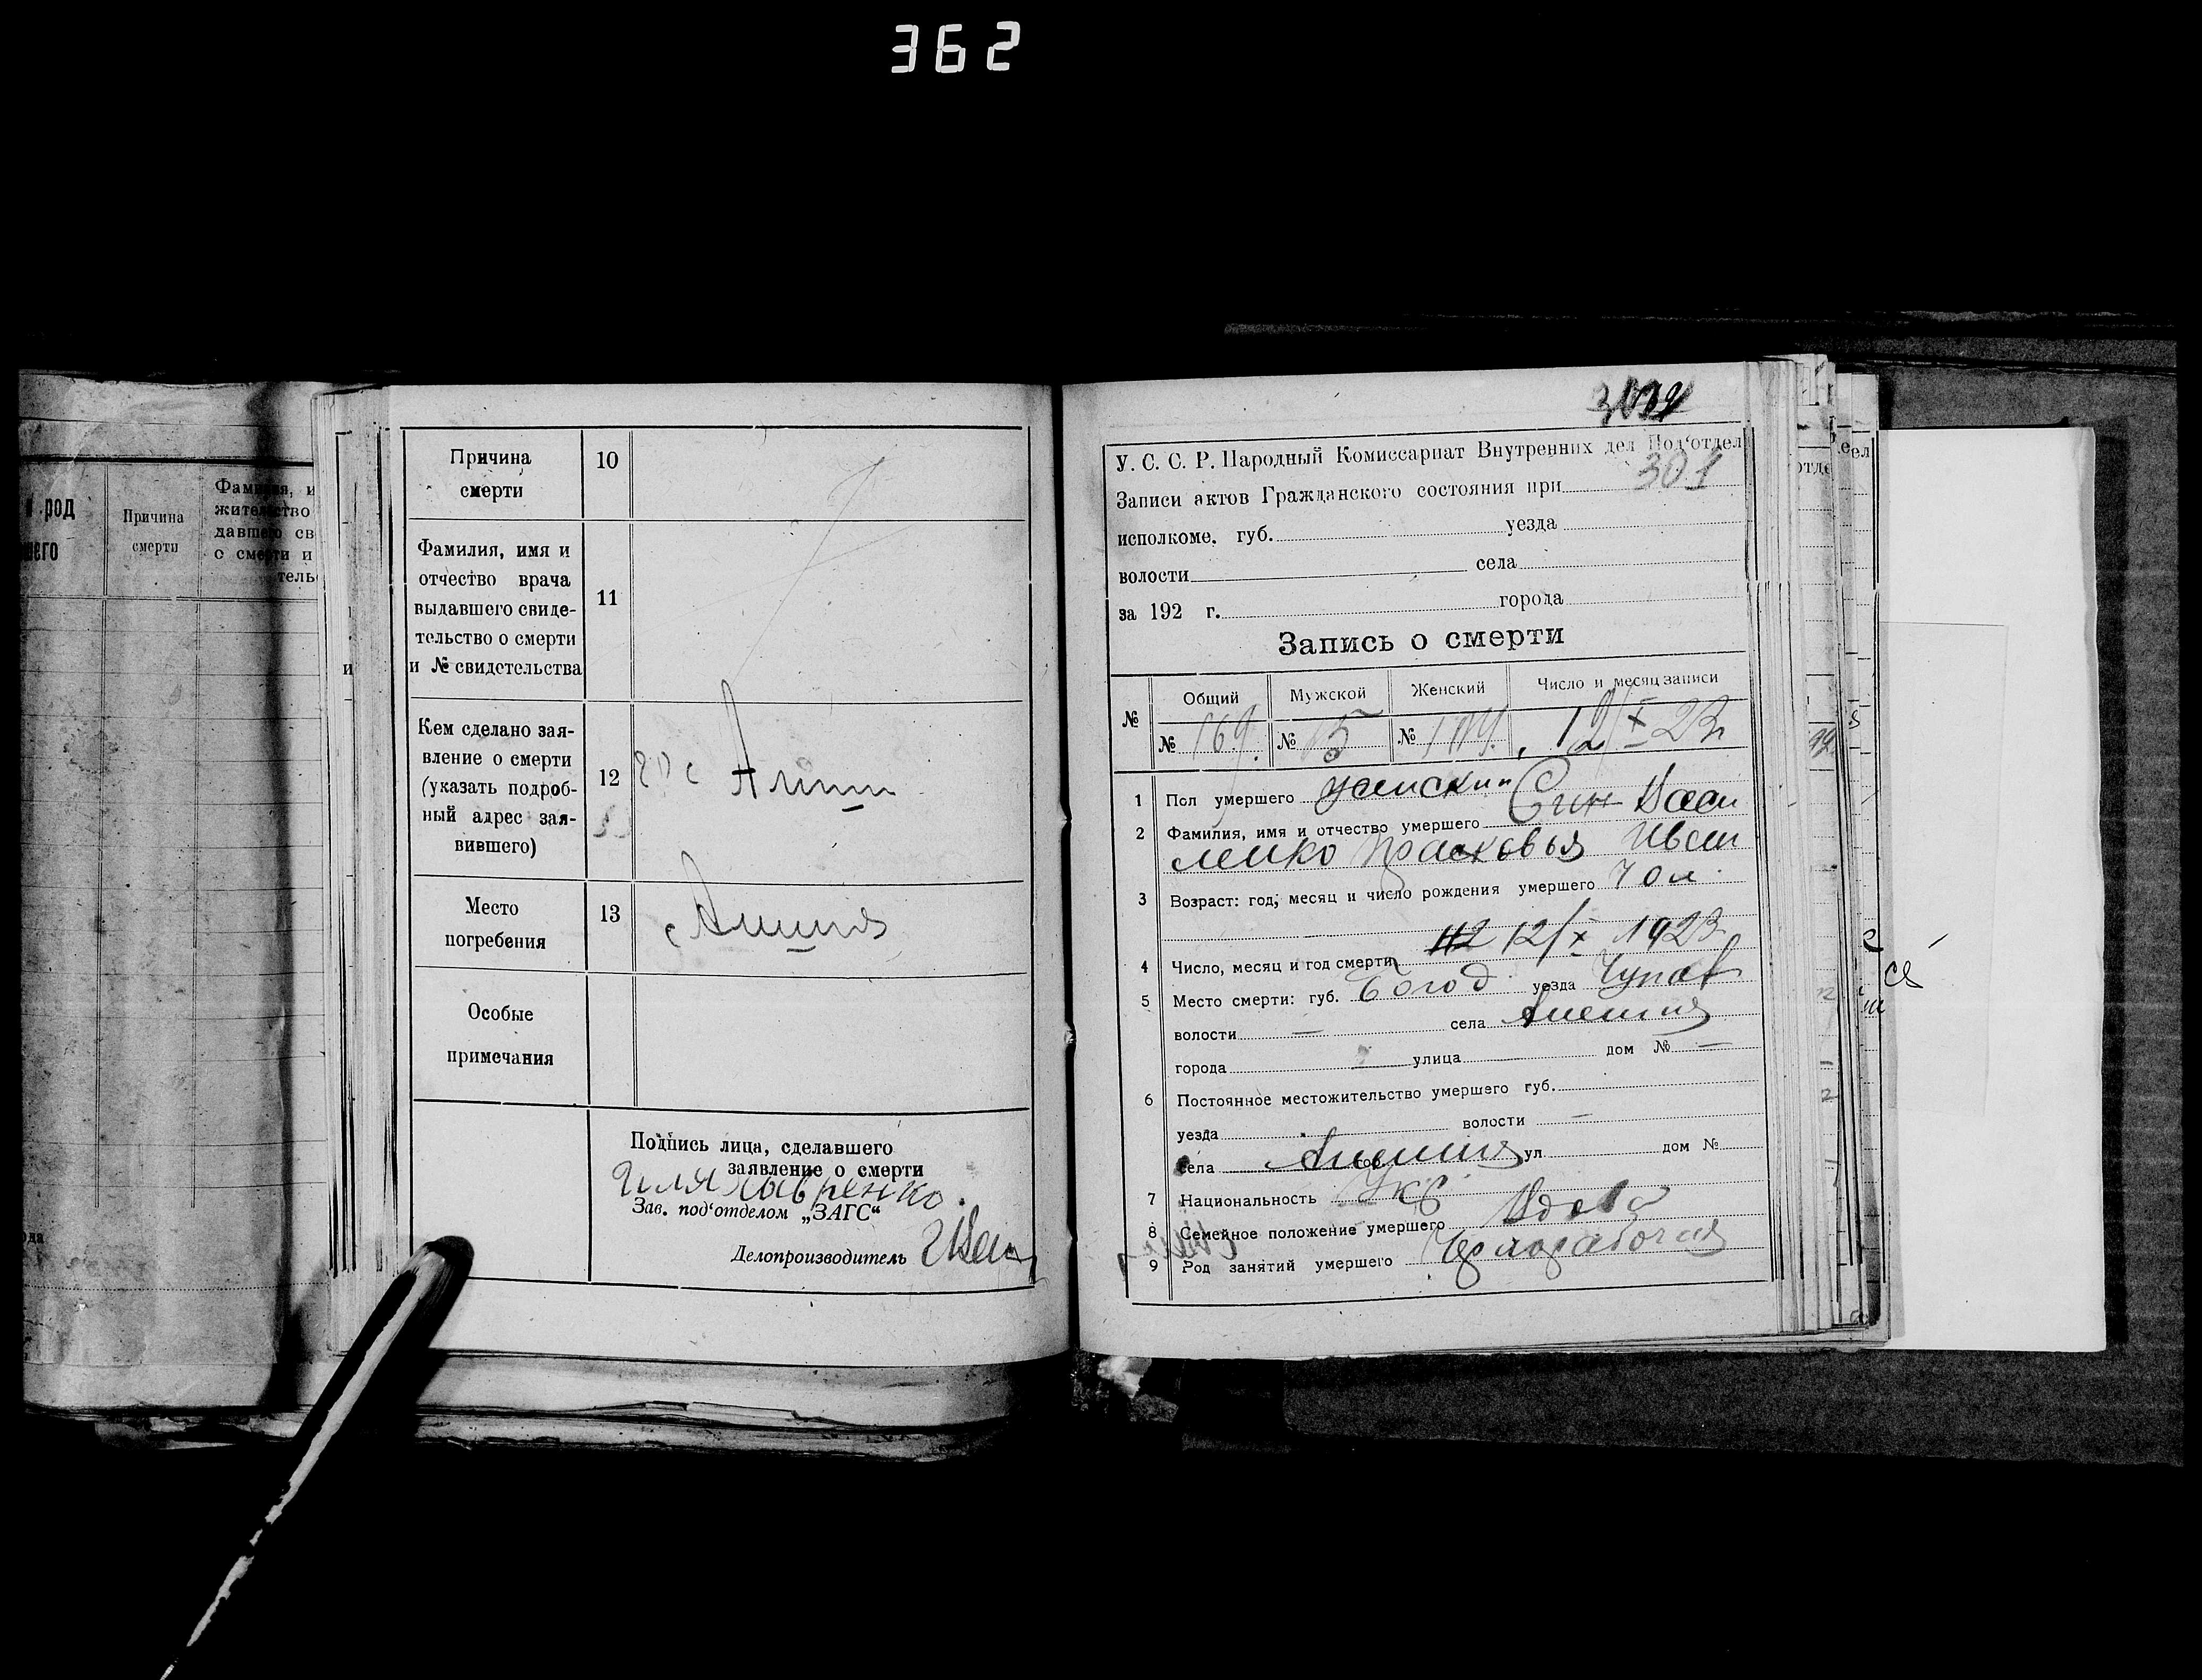 362
род
шего
Причина
смерти
Фамилия, и
жительство
давшего св
о смерти и
тель
Причина
смерти
10
Фамилия, имя и
отчество врача
выдавшего свиде-
тельство о смерти
и № свидетельства
11
Кем сделано зая-
вление о смерти
(указать подроб-
ный адрес зая-
вившего)
12
Место
погребения
13
Особые
примечания
Подпись лица, сделавшего
заявление о смерти
Зав. под‘отделом „ЗАГС“
Делопроизводитель
У. С. С. Р. Народный Комиссариат Внутренних дел Под‘отдел
Записи актов Гражданского состояния при 301
исполкоме. губ. уезда
волости села
за 192 г. города
Запись о смерти
№ Общий Мужской Женский Число и месяц записи
№ 169. № № 12/X 23
1 Пол умершего женский
2 Фамилия, имя и отчество умершего Васи
ленко Прасковья Иван
3 Возраст: год, месяц и число рождения умершего 70 л.
12/X 1923
4 Число, месяц и год смерти
5 Место смерти: губ. Богод уезда Чупах
волости — села
города — улица дом № —
6 Постоянное местожительство умершего губ.
уезда волости —
села гор. ул дом №
7 Национальность Укр
8 Семейное положение умершего Вдова
9 Род занятий умершего Чернорабочая